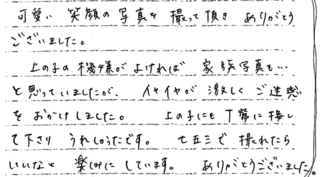 可愛い 笑顔の写真を 撮って頂き ありがとう
ございました。
上の子の機嫌がよければ 家族写真も…
と思っていましたが、イヤイヤが激しく ご迷惑
をおかけしました。 上の子にも丁寧に接し
て下さり うれしかったです。 七五三で撮れたら
いいなと 楽しみに しています。 ありがとうございました。